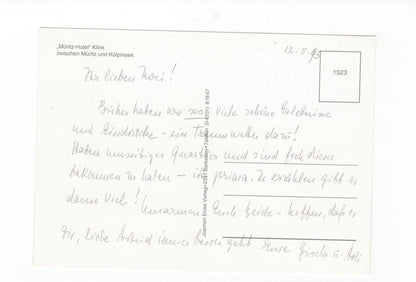 „Müritz-Hotel“ Klink
zwischen Müritz und Kölpinsee.
12.5.95
1523
Ihr lieben Zwei!
Bisher haben wir sooo viele schöne Erlebnisse
und Eindrücke - ein Traumwetter dazu!
Haben einmaliges Quartier und sind froh dieses
bekommen zu haben - ist prima. Zu erzählen gibt es
dann viel! Umarmen Euch beide - hoffen, daß es
Dir, liebe Astrid immer besser geht Eure Gisela u.
Joachim Eicke Verlag • 2081 Bönningst. • Telefon (04051) 81647